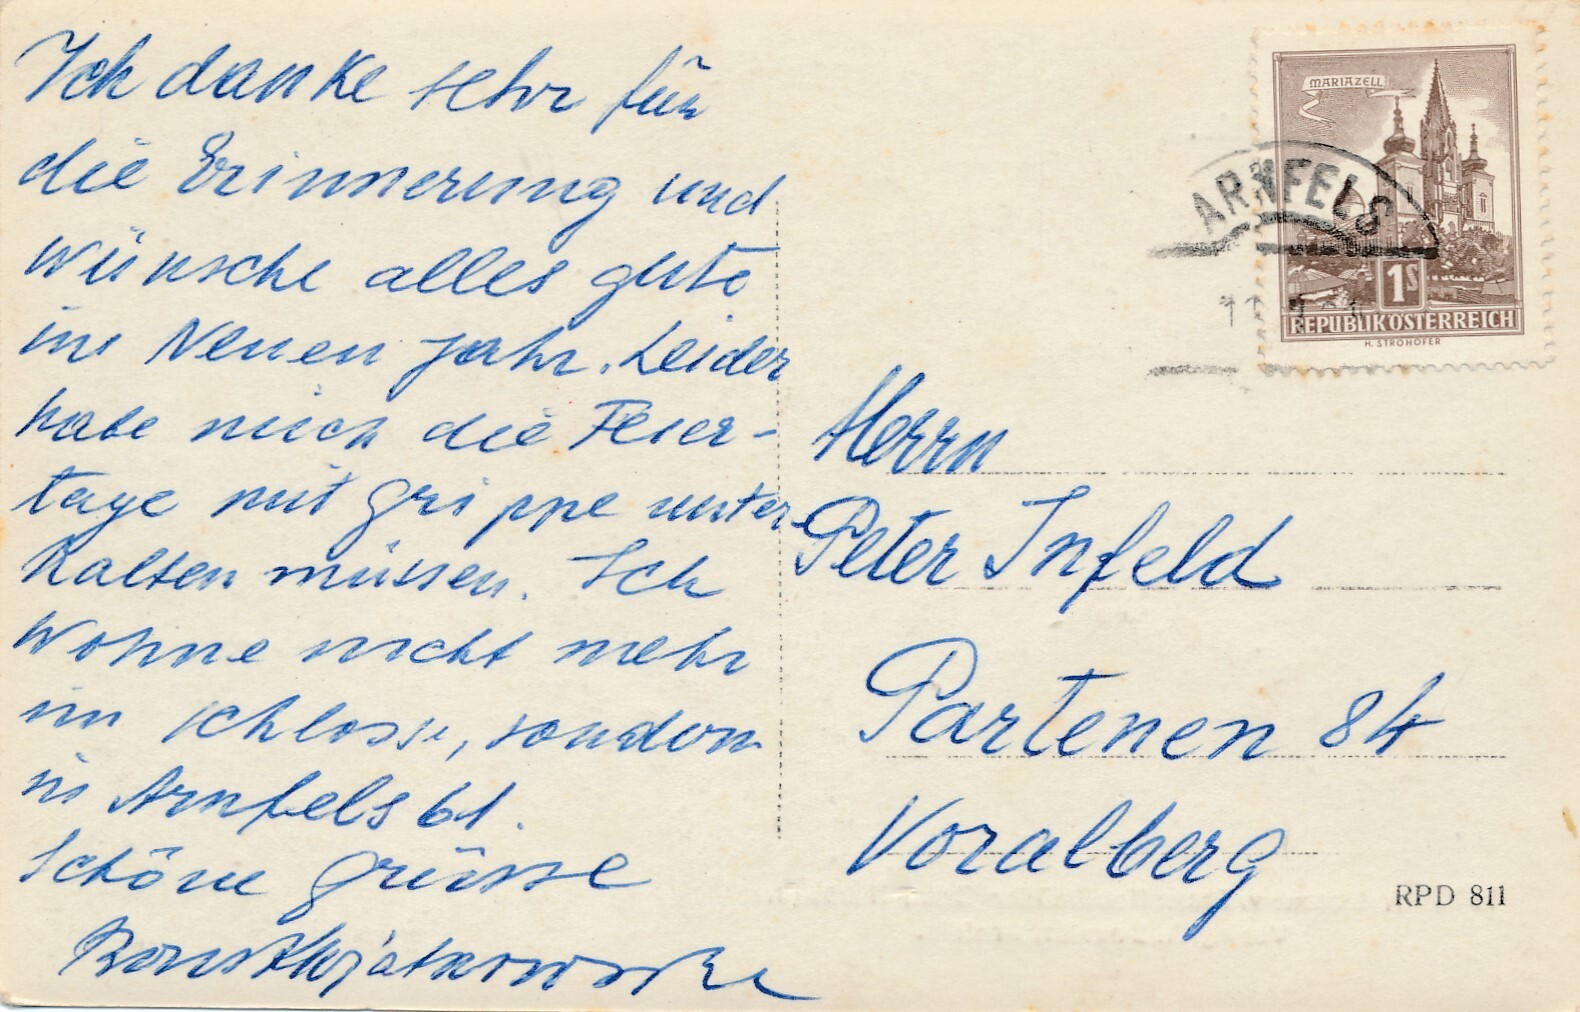 Ich danke sehr für
die Erinnerung und
wünsche alles gute
im Neuen Jahr. Leider
habe mich die Feier-
tage mit Grippe unter-
halten müssen. Ich
wohne nicht mehr
im Schlosse, sondern
in Arnfels 61.
Schöne Grüsse
MARIAZELL
ARNFELS
1S
REPUBLIK ÖSTERREICH
H. STROHOFER
Herrn
Peter Infeld
Partenen 84
Voralberg
RPD 811